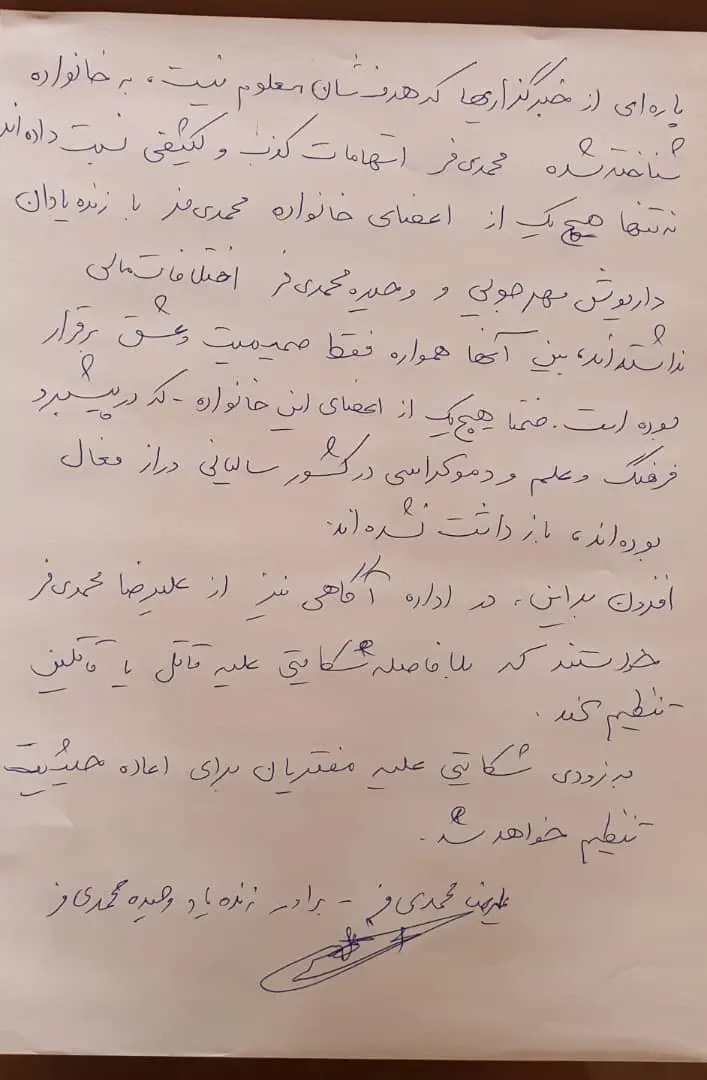 پاره‌ای از خبرگزاریها که هدف‌شان معلوم نیست، به خانواده
شناخته‌شده محمدی‌فر اتهامات کذب و کثیفی نسبت داده‌اند
نه‌تنها هیچ یک از اعضای خانواده محمدی‌فر با زنده‌یادان
داریوش مهرجویی و وحیده محمدی‌فر اختلافات مالی
نداشته‌اند، بین آنها همواره فقط صمیمیت و عشق برقرار
بوده است. ضمناً هیچ‌یک از اعضای این خانواده - که در پیشبرد
فرهنگ و علم و دموکراسی در کشور سالیانی دراز فعال
بوده‌اند، بازداشت نشده‌اند.
افزون براین، در اداره آگاهی نیز از علیرضا محمدی‌فر
خواستند که بلافاصله شکایتی علیه قاتل یا قاتلین
تنظیم کند.
به‌زودی شکایتی علیه مفتریان برای اعاده حیثیت
تنظیم خواهد شد.
علیرضا محمدی‌فر - برادر زنده یاد وحیده محمدی‌فر